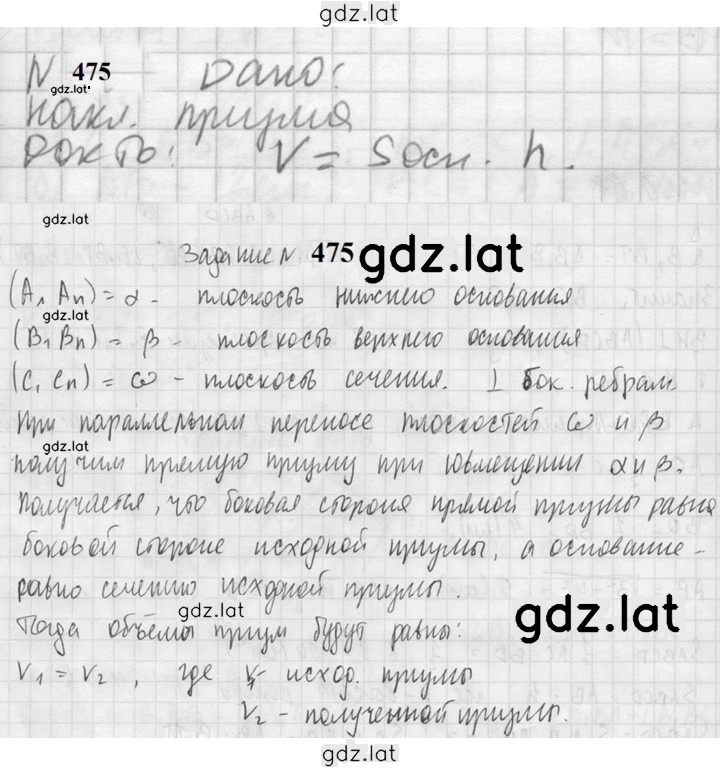 gdz.lat
N 475 Дано:
gdz.lat
накл. призма
Док-ть: V = Sосн. h.
gdz.lat
Задание N 475 gdz.lat
(A₁ Aₙ) = α - плоскость нижнего основания
gdz.lat
(B₁ Bₙ) = β - плоскость верхнего основания
(C₁ Cₙ) = ω - плоскость сечения. ⊥ бок. ребрам
При параллельном переносе плоскостей ω и β
gdz.lat
получим прямую призму при совмещении α и β.
Получается, что боковая сторона прямой призмы равна
боковой стороне исходной призмы, а основание -
равно сечению исходной призмы.
gdz.lat gdz.lat
Тогда объёмы призм будут равны:
V₁ = V₂ , где V₁- исход. призмы
V₂ - полученной призмы.
gdz.lat